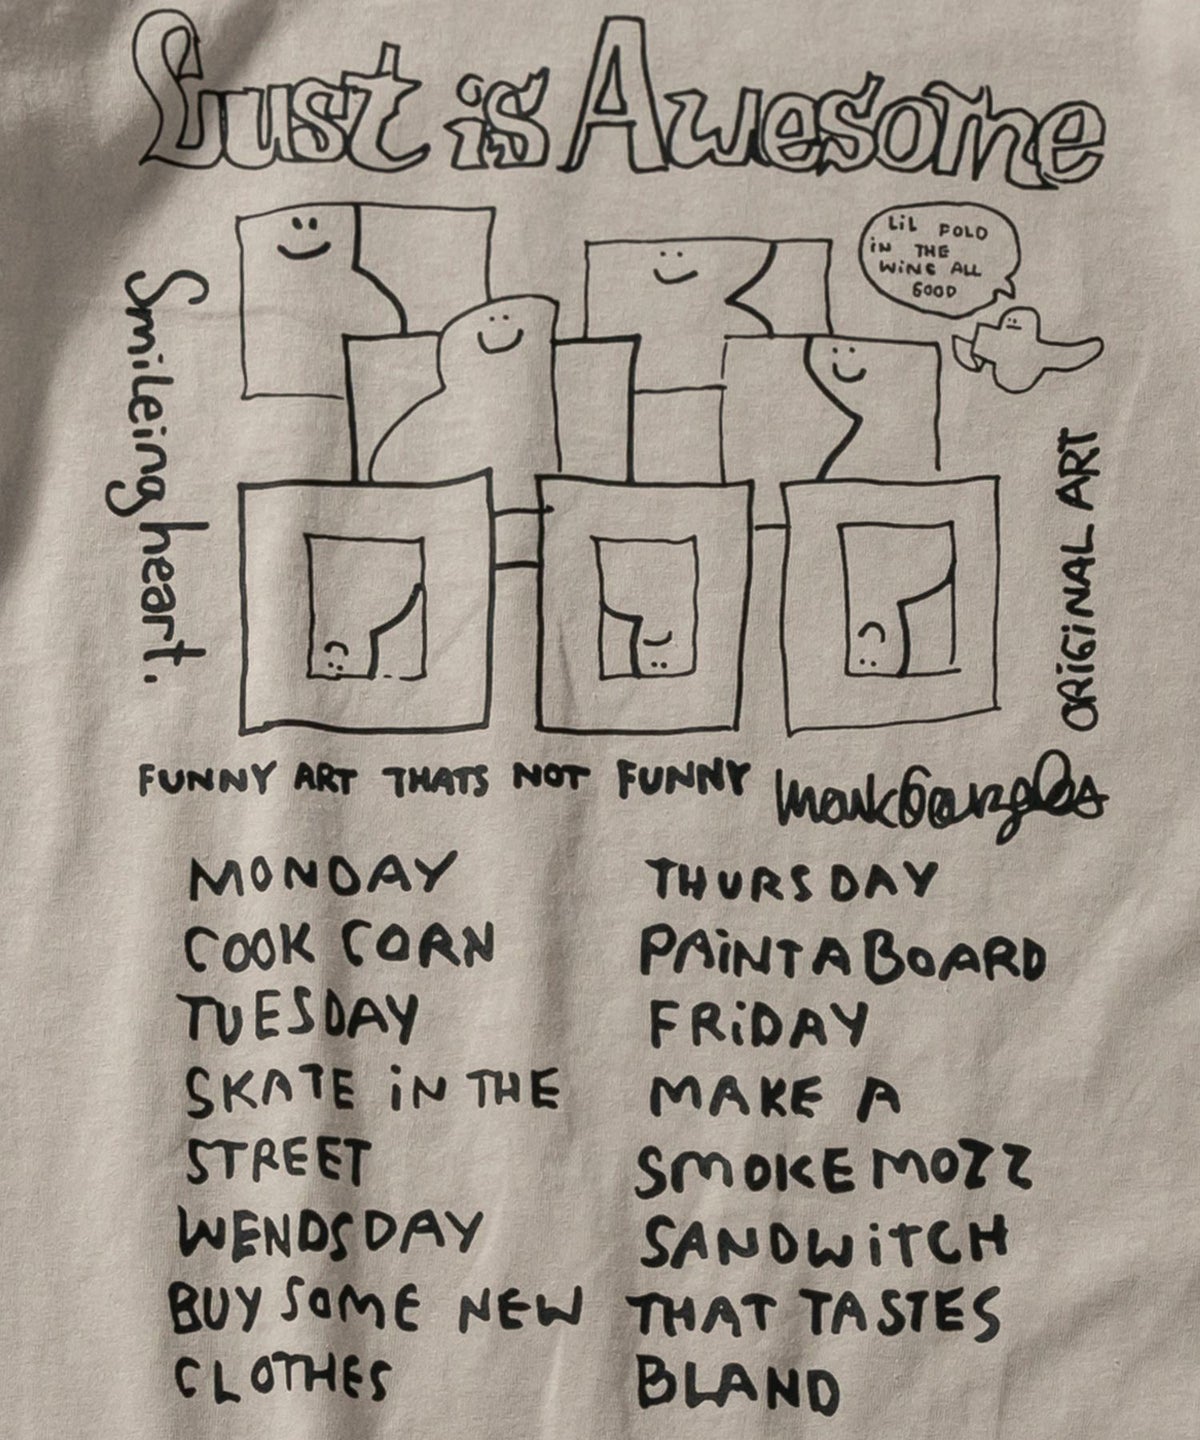 Lust is Awesome
LiL FOLD
iN THE
WiNG ALL
GOOD
Smileing heart.
ORiGiNAL ART
FUNNY ART THATS NOT FUNNY
MarkGonzales
MONDAY
COOK CORN
TUESDAY
SKATE iN THE
STREET
WENDSDAY
BUY SOME NEW
CLOTHES
THURSDAY
PAiNT A BOARD
FRiDAY
MAKE A
SMOKE MOZZ
SANDWiTCH
THAT TASTES
BLAND